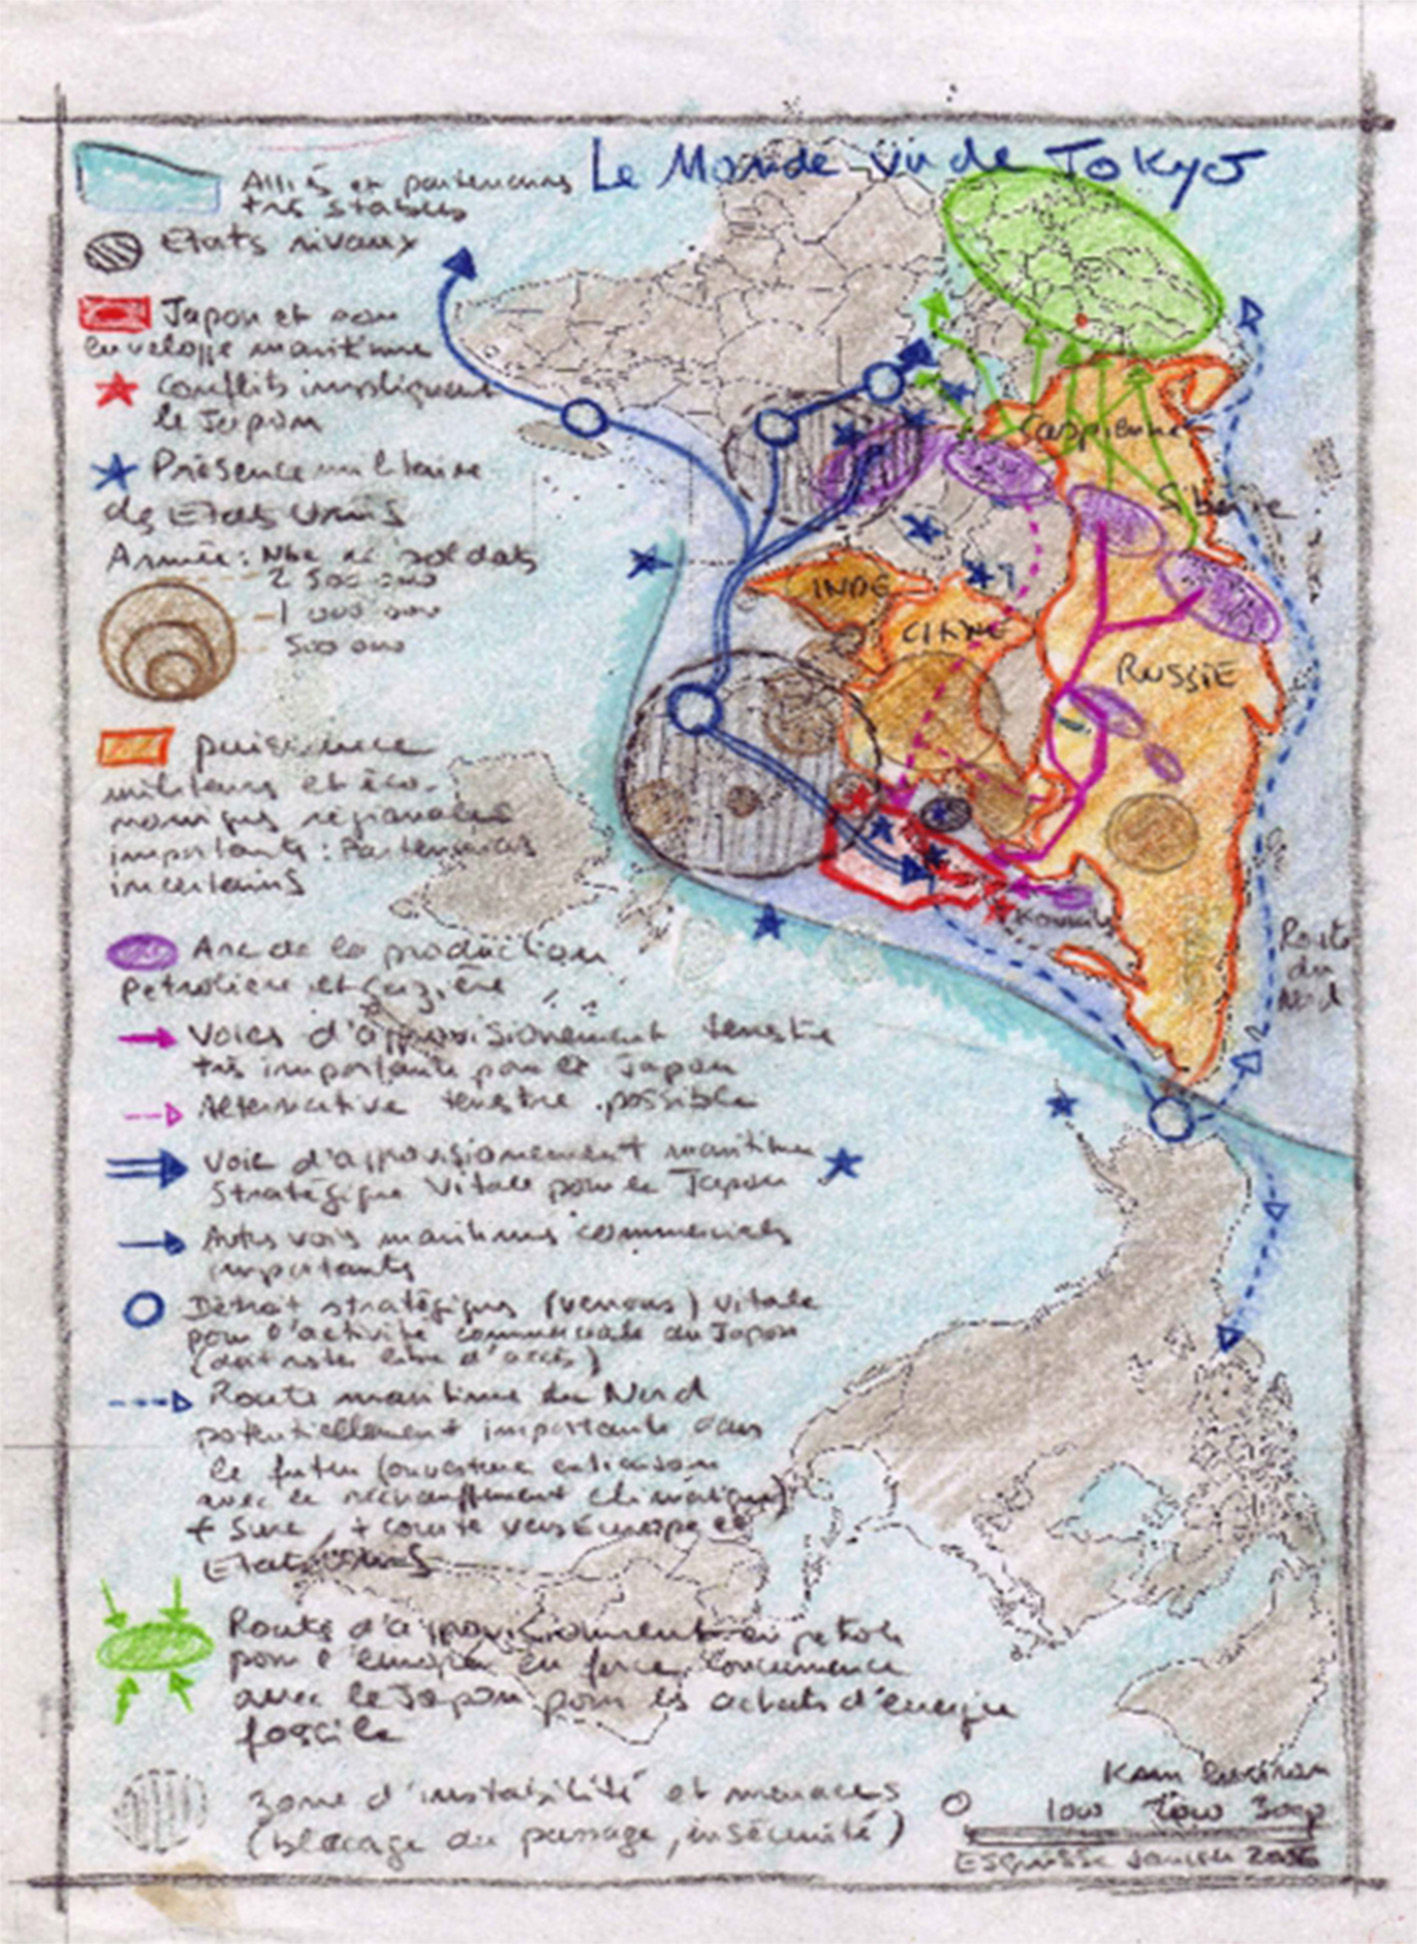 Le Monde vu de Tokyo
Alliés et partenaires
très stables
Etats rivaux
Japon et son
enveloppe maritime
Conflits impliquant
le Japon
Présence militaire
des Etats Unis
Armée : Nbe de soldats
2 500 000
1 000 000
500 000
puissance
militaires et éco-
nomiques régionales
importants : Partenaires
incertains
Arc de la production
pétrolière et gazière
Voies d'approvisionement terrestre
très importante pour le Japon
Alternative terrestre possible
Voie d'approvisionement maritime
Stratégique Vitale pour le Japon
Autres voies maritimes commerciales
importants
Détroit stratégique (verrous) vitale
pour l'activité commerciale du Japon
(doit rester libre d'accès)
Route maritime du Nord
potentiellement importante dans
le futur (ouverture en liaison
avec le réchauffement climatique)
+ Sure, + courte vers Europe et
Etats Unis
Route d'approvisionnement en pétrole
pour l'Europe en forte concurrence
avec le Japon pour les achats d'énergie
fossile
Zone d'instabilité et menaces
(blocage du passage, insécurité)
Caspienne
Sibérie
INDE
CHINE
RUSSIE
Kouriles
Route
du
Nord
0 1000 2000 3000
Esquisse